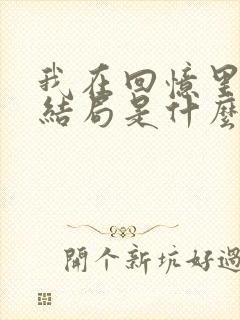 我在回憶里
結局是什麼
開個新坑好過